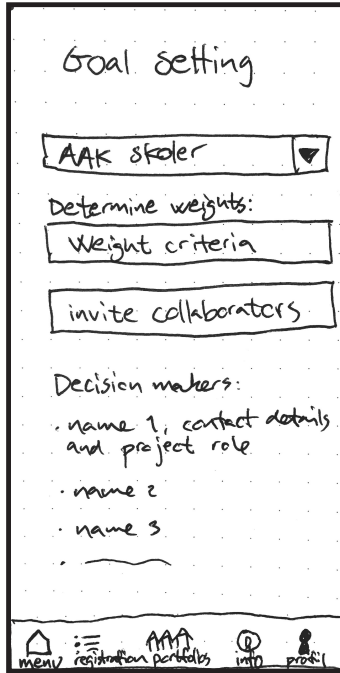 Goal setting
AAK skoler
Determine weights:
Weight criteria
invite collaborators
Decision makers:
· name 1, contact details
and project role
· name 2
· name 3
menu registration portfolios info profil